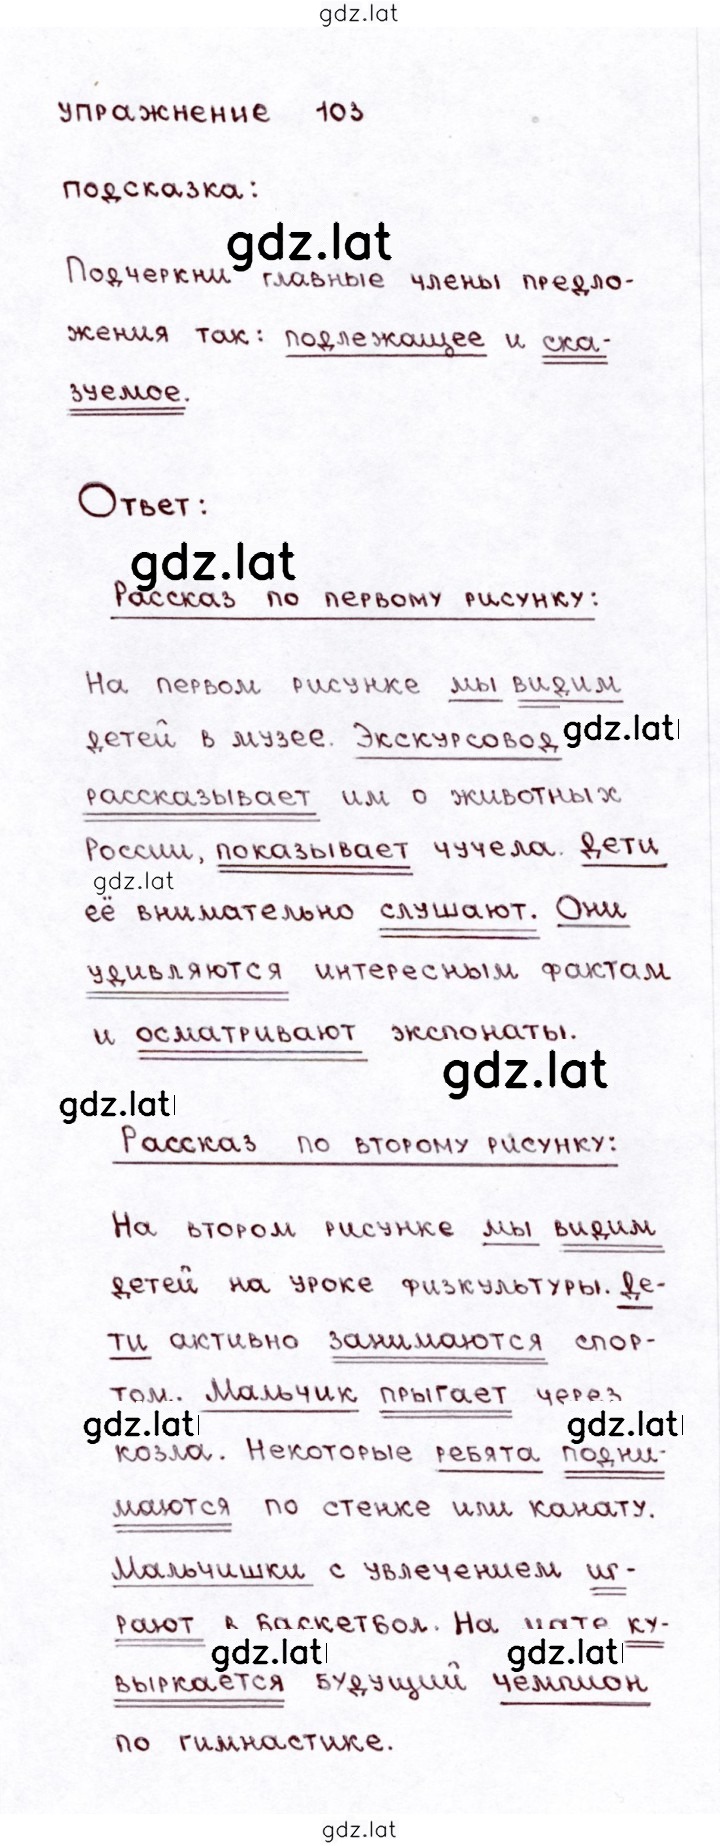 gdz.lat
упражнение 103
подсказка:
gdz.lat
Подчеркни главные члены предло-
жения так: подлежащее и ска-
зуемое.
Ответ:
gdz.lat
Рассказ по первому рисунку:
На первом рисунке мы видим
детей в музее. Экскурсовод
gdz.lat
рассказывает им о животных
России, показывает чучела. Дети
gdz.lat
её внимательно слушают. Они
удивляются интересным фактам
и осматривают экспонаты.
gdz.lat
gdz.lat
Рассказ по второму рисунку:
На втором рисунке мы видим
детей на уроке физкультуры. Де-
ти активно занимаются спор-
том. Мальчик прыгает через
gdz.lat gdz.lat
козла. Некоторые ребята подни-
маются по стенке или канату.
Мальчишки с увлечением иг-
рают в баскетбол. На мате ку-
gdz.lat gdz.lat
выркается будущий чемпион
по гимнастике.
gdz.lat